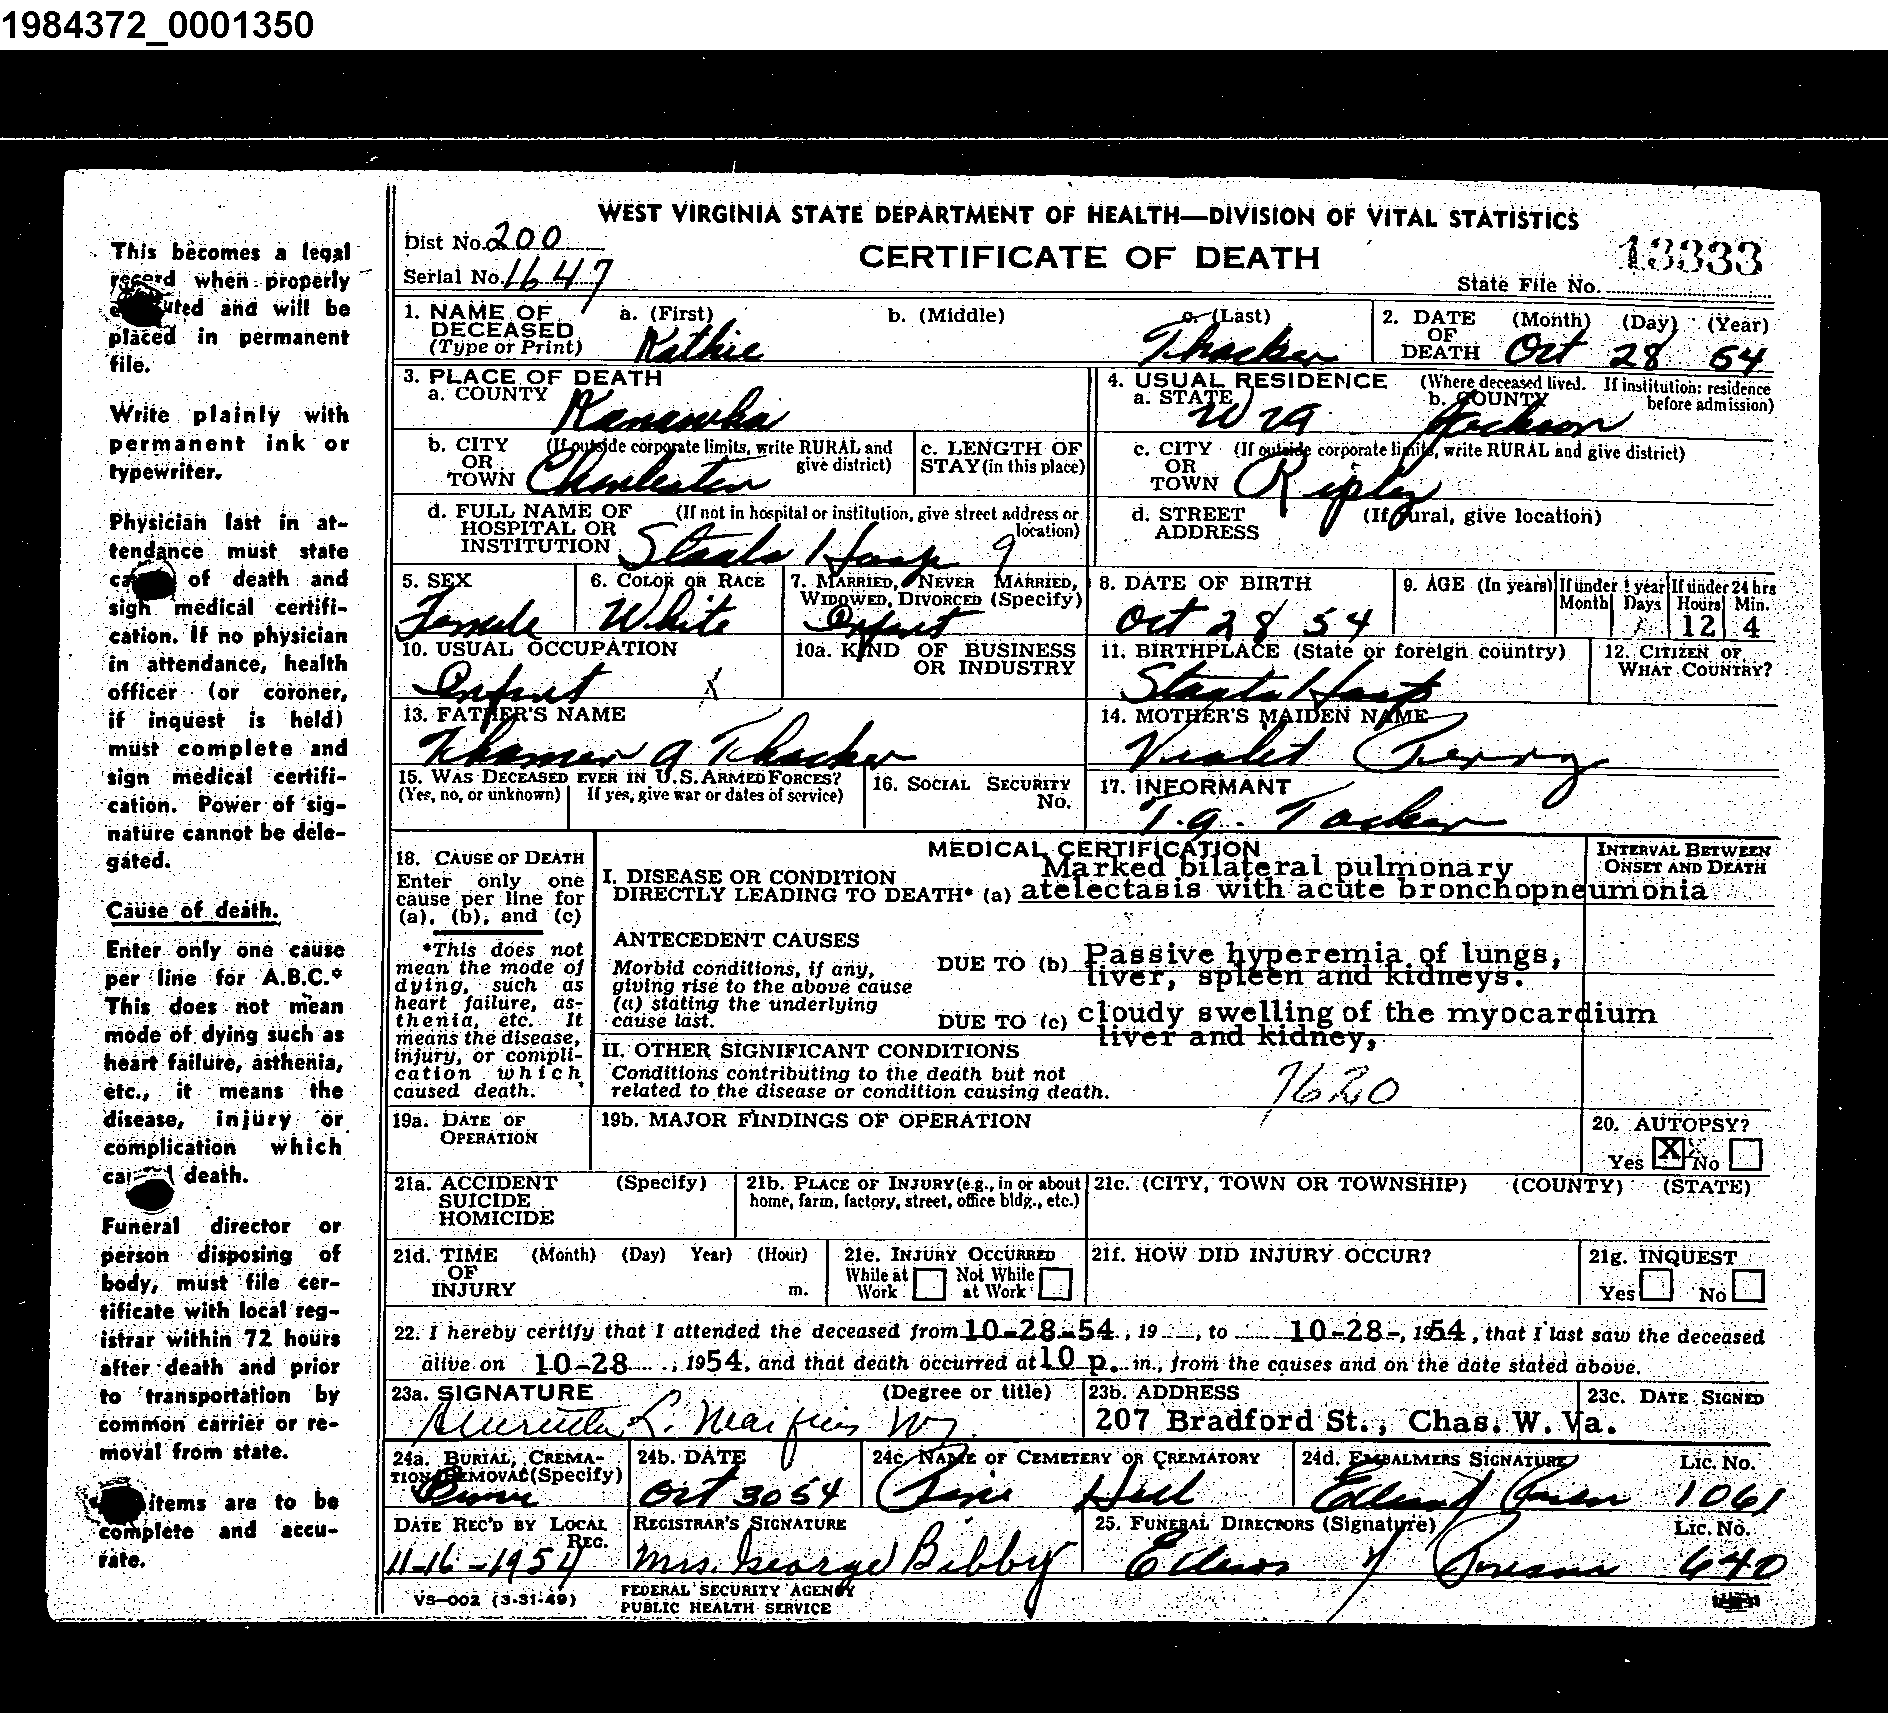 1984372_0001350
WEST VIRGINIA STATE DEPARTMENT OF HEALTH—DIVISION OF VITAL STATISTICS
Dist No. 200
CERTIFICATE OF DEATH
13333
Serial No. 1647
State File No.
1. NAME OF DECEASED (Type or Print) a. (First) Kathie b. (Middle) c. (Last) Thacker
2. DATE OF DEATH (Month) (Day) (Year) Oct 28 54
3. PLACE OF DEATH
a. COUNTY Kanawha
4. USUAL RESIDENCE (Where deceased lived. If institution: residence before admission)
a. STATE W Va b. COUNTY Jackson
b. CITY OR TOWN (If outside corporate limits, write RURAL and give district) Charleston
c. LENGTH OF STAY (in this place)
c. CITY OR TOWN (If outside corporate limits, write RURAL and give district) Ripley
d. FULL NAME OF HOSPITAL OR INSTITUTION (If not in hospital or institution, give street address or location) Staats Hosp 9
d. STREET ADDRESS (If rural, give location)
5. SEX Female
6. COLOR OR RACE White
7. MARRIED, NEVER MARRIED, WIDOWED, DIVORCED (Specify) Infant
8. DATE OF BIRTH Oct 28 54
9. AGE (In years) If under 1 year Month Days If under 24 hrs Hours 12 Min. 4
10. USUAL OCCUPATION Infant X
10a. KIND OF BUSINESS OR INDUSTRY
11. BIRTHPLACE (State or foreign country) Staats Hosp
12. CITIZEN OF WHAT COUNTRY?
13. FATHER'S NAME Thamer G Thacker
14. MOTHER'S MAIDEN NAME Violet Perry
15. WAS DECEASED EVER IN U.S. ARMED FORCES? (Yes, no, or unknown) If yes, give war or dates of service)
16. SOCIAL SECURITY No.
17. INFORMANT T.G. Tacker
18. CAUSE OF DEATH
Enter only one cause per line for (a), (b), and (c)
*This does not mean the mode of dying, such as heart failure, asthenia, etc. It means the disease, injury, or complication which caused death.
MEDICAL CERTIFICATION
INTERVAL BETWEEN ONSET AND DEATH
I. DISEASE OR CONDITION DIRECTLY LEADING TO DEATH* (a) Marked bilateral pulmonary
atelectasis with acute bronchopneumonia
ANTECEDENT CAUSES
Morbid conditions, if any, giving rise to the above cause (a) stating the underlying cause last.
DUE TO (b) Passive hyperemia of lungs,
liver, spleen and kidneys.
DUE TO (c) cloudy swelling of the myocardium
liver and kidney,
II. OTHER SIGNIFICANT CONDITIONS
Conditions contributing to the death but not
related to the disease or condition causing death.
7620
19a. DATE OF OPERATION
19b. MAJOR FINDINGS OF OPERATION
20. AUTOPSY?
Yes X No
21a. ACCIDENT SUICIDE HOMICIDE (Specify)
21b. PLACE OF INJURY (e.g., in or about home, farm, factory, street, office bldg., etc.)
21c. (CITY, TOWN OR TOWNSHIP) (COUNTY) (STATE)
21d. TIME OF INJURY (Month) (Day) Year) (Hour) m.
21e. INJURY OCCURRED
While at Work Not While at Work
21f. HOW DID INJURY OCCUR?
21g. INQUEST
Yes No
22. I hereby certify that I attended the deceased from 10-28-54, 19, to 10-28-, 1954, that I last saw the deceased
alive on 10-28, 1954, and that death occurred at 10 p. m., from the causes and on the date stated above.
23a. SIGNATURE (Degree or title)
23b. ADDRESS 207 Bradford St., Chas. W. Va.
23c. DATE SIGNED
24a. BURIAL, CREMATION REMOVAL (Specify)
24b. DATE Oct 30 54
24c. NAME OF CEMETERY OR CREMATORY Pine Hill
24d. EMBALMERS SIGNATURE Lic. No. 1061
DATE REC'D BY LOCAL REG. 11-16-1954
REGISTRAR'S SIGNATURE Mrs. George Bibby
25. FUNERAL DIRECTORS (Signature) Lic. No. 640
VS-002 (3-31-49)
FEDERAL SECURITY AGENCY
PUBLIC HEALTH SERVICE
This becomes a legal
record when properly
and will be
placed in permanent
file.
Write plainly with
permanent ink or
typewriter.
Physician last in at-
tendance must state
of death and
sign medical certifi-
cation. If no physician
in attendance, health
officer (or coroner,
if inquest is held)
must complete and
sign medical certifi-
cation. Power of sig-
nature cannot be dele-
gated.
Cause of death.
Enter only one cause
per line for A.B.C.*
This does not mean
mode of dying such as
heart failure, asthenia,
etc., it means the
disease, injury or
complication which
death.
Funeral director or
person disposing of
body, must file cer-
tificate with local reg-
istrar within 72 hours
after death and prior
to transportation by
common carrier or re-
moval from state.
items are to be
complete and accu-
rate.